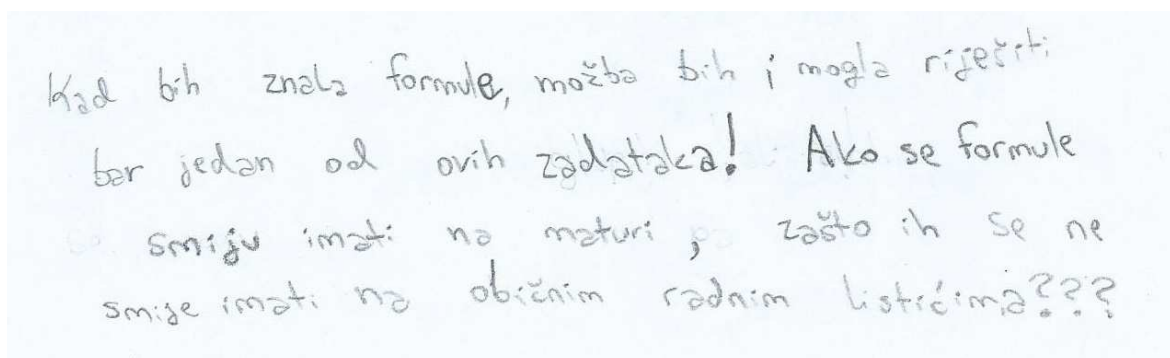 Kad bih znala formule, možda bih i mogla riješiti
bar jedan od ovih zadataka! Ako se formule
smiju imati na maturi, zašto ih se ne
smije imati na običnim radnim listićima???